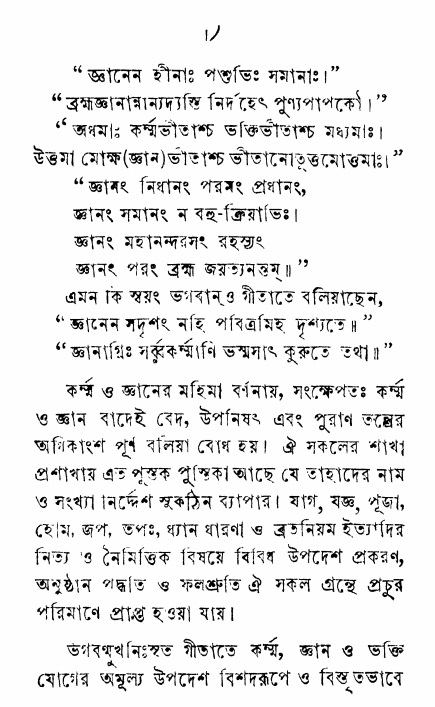 “জ্ঞানেন হীনাঃ পশুভিঃ সমানাঃ।”
“ব্রহ্মজ্ঞানান্নান্যদ্যস্তি নির্দহেৎ পুণ্যপাপকৌ।”
“অধমাঃ কর্ম্মভীতাশ্চ ভক্তিভীতাশ্চ মধ্যমাঃ।
উত্তমা মোক্ষ(জ্ঞান)ভীতাশ্চ ভীতানোত্তূমোত্তমাঃ।”
“জ্ঞানং নিধানং পরমং প্রধানং,
জ্ঞানং সমানং ন বহু-ক্রিয়াভিঃ।
জ্ঞানং মহানন্দরসং রহস্যং
জ্ঞানং পরং ব্রহ্ম জয়ত্যনন্তম্॥”
এমন কি স্বয়ং ভগবান্‌ও গীতাতে বলিয়াছেন,
“জ্ঞানেন সদৃশং নহি পবিত্রমিহ দৃশ্যতে॥”
“জ্ঞানাগ্নিঃ সর্ব্বকর্ম্মাণি ভস্মসাৎ কুরুতে তথা॥”
কর্ম্ম ও জ্ঞানের মহিমা বর্ণনায়, সংক্ষেপতঃ কর্ম্ম
ও জ্ঞান বাদেই বেদ, উপনিষৎ এবং পুরাণ তন্ত্রের
অধিকাংশ পূর্ণ বলিয়া বোধ হয়। ঐ সকলের শাখা
প্রশাখায় এত পুস্তক পুস্তিকা আছে যে তাহাদের নাম
ও সংখ্যা নির্দ্দেশ সুকঠিন ব্যাপার। যাগ, যজ্ঞ, পূজা,
হোম, জপ, তপঃ, ধ্যান ধারণা ও ব্রতনিয়ম ইত্যাদির
নিত্য ও নৈমিত্তিক বিষয়ে বিবিধ উপদেশ প্রকরণ,
অনুষ্ঠান পদ্ধতি ও ফলশ্রুতি ঐ সকল গ্রন্থে প্রচুর
পরিমাণে প্রাপ্ত হওয়া যায়।
ভগবন্মুখনিঃসৃত গীতাতে কর্ম্ম, জ্ঞান ও ভক্তি
যোগের অমূল্য উপদেশ বিশদরূপে ও বিস্তৃতভাবে